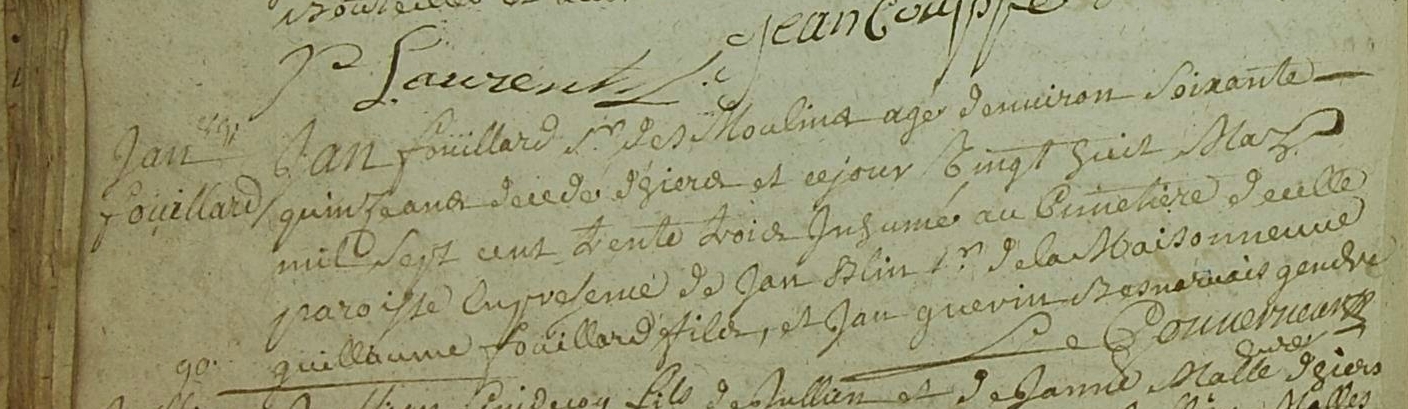 Jean Couppé
P Laurent
Jan
fouillard
Jan fouillard Sr des Moulins agé denuiron Soixante
quinze ans decedé d'hier et ce jour Vingt huit May
mil Sept cent trente trois Inhumé au Cimetière de celle
paroisse En presence de Jan Blin Sr de la Maisonneuve
guillaume fouillard fils, et Jan guerin Besnerais gendre
Le Gouuerneur
Curé
90.
fils de Jullien et de Janne Malle d'hier